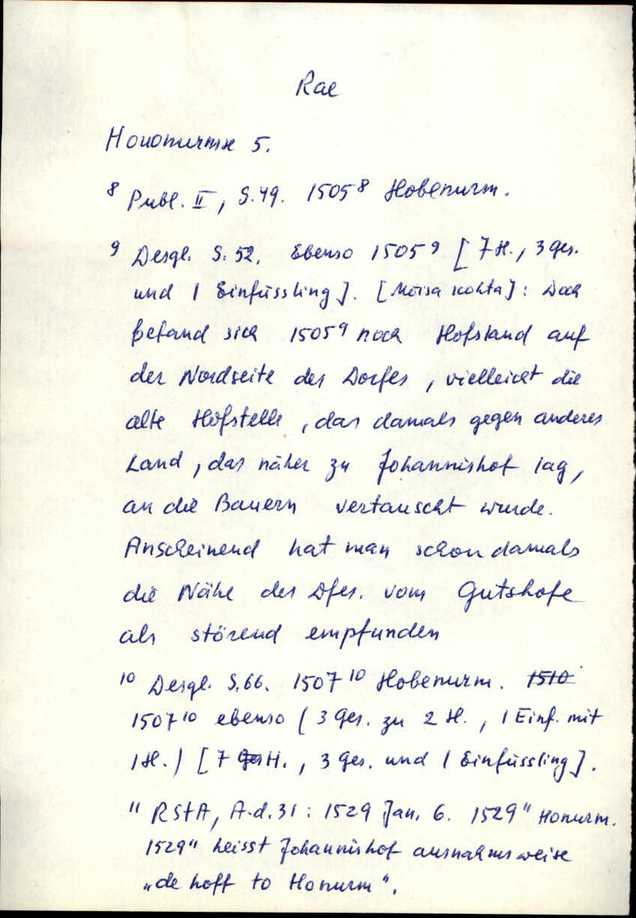 Rae
Hononurme 5.
⁸ Publ. II, S. 49. 1505⁸ Hobenurm.
⁹ Desgl. S. 52. Ebenso 1505⁹ [7 H., 3 Ges.
und 1 Einfüssling]. [Mõisa kohta]: Doch
befand sich 1505⁹ noch Hofsland auf
der Nordseite des Dorfes, vielleicht die
alte Hofstelle, das damals gegen anderes
Land, das näher zu Johannishof lag,
an die Bauern vertauscht wurde.
Anscheinend hat man schon damals
die Nähe des Dfes. vom Gutshofe
als störend empfunden
¹⁰ Desgl. S. 66. 1507¹⁰ Hobenurm. 1510
1507¹⁰ ebenso (3 Ges. zu 2 H., 1 Einf. mit
1 H.) [7 Ges H., 3 Ges. und 1 Einfüssling].
¹¹ RStA, A.d. 31: 1529 Jan. 6. 1529¹¹ Honurm.
1529¹¹ heisst Johannishof ausnahmsweise
„de hoff to Honurm“.